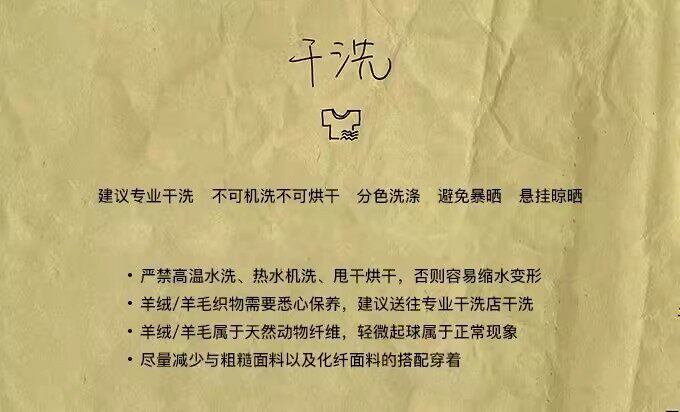 干洗
建议专业干洗 不可机洗不可烘干 分色洗涤 避免暴晒 悬挂晾晒
• 严禁高温水洗、热水机洗、甩干烘干，否则容易缩水变形
• 羊绒/羊毛织物需要悉心保养，建议送往专业干洗店干洗
• 羊绒/羊毛属于天然动物纤维，轻微起球属于正常现象
• 尽量减少与粗糙面料以及化纤面料的搭配穿着